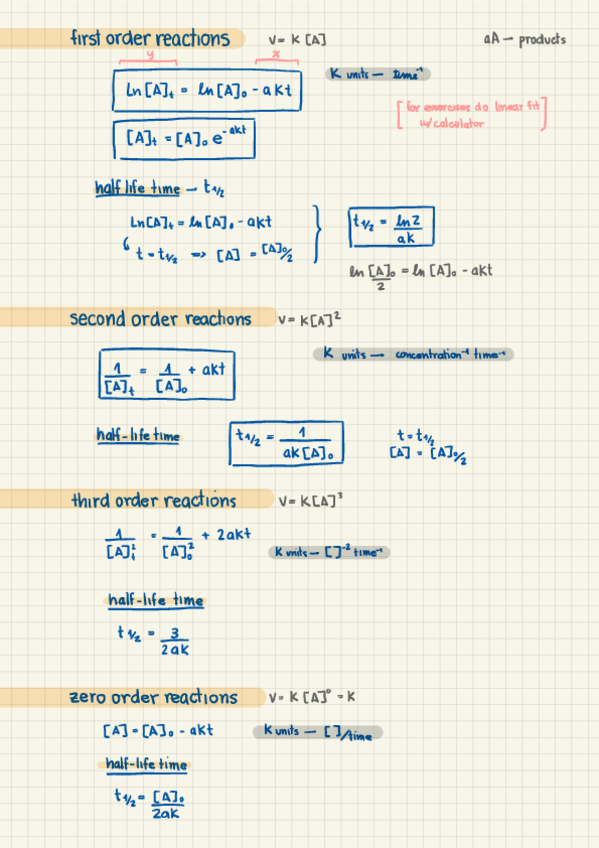 first order reactions V = K [A] aA — products
y x
Ln[A]t = ln[A]₀ - akt K units — time⁻¹
[for exercises do linear fit
w/calculator]
[A]t = [A]₀ e^-akt
half life time — t1/2
Ln[A]t = ln[A]₀ - akt
t = t1/2 => [A] = [A]₀/2
t1/2 = ln2/ak
ln [A]₀/2 = ln [A]₀ - akt
second order reactions V = K[A]²
K units — concentration⁻¹ time⁻¹
1/[A]t = 1/[A]₀ + akt
half-life time t1/2 = 1/ak[A]₀ t = t1/2
[A] = [A]₀/2
third order reactions V = K[A]³
1/[A]t² = 1/[A]₀² + 2akt
K units — [ ]⁻² time⁻¹
half-life time
t1/2 = 3/2ak
zero order reactions V = K [A]⁰ = K
[A] = [A]₀ - akt K units — [ ]/time
half-life time
t1/2 = [A]₀/2ak